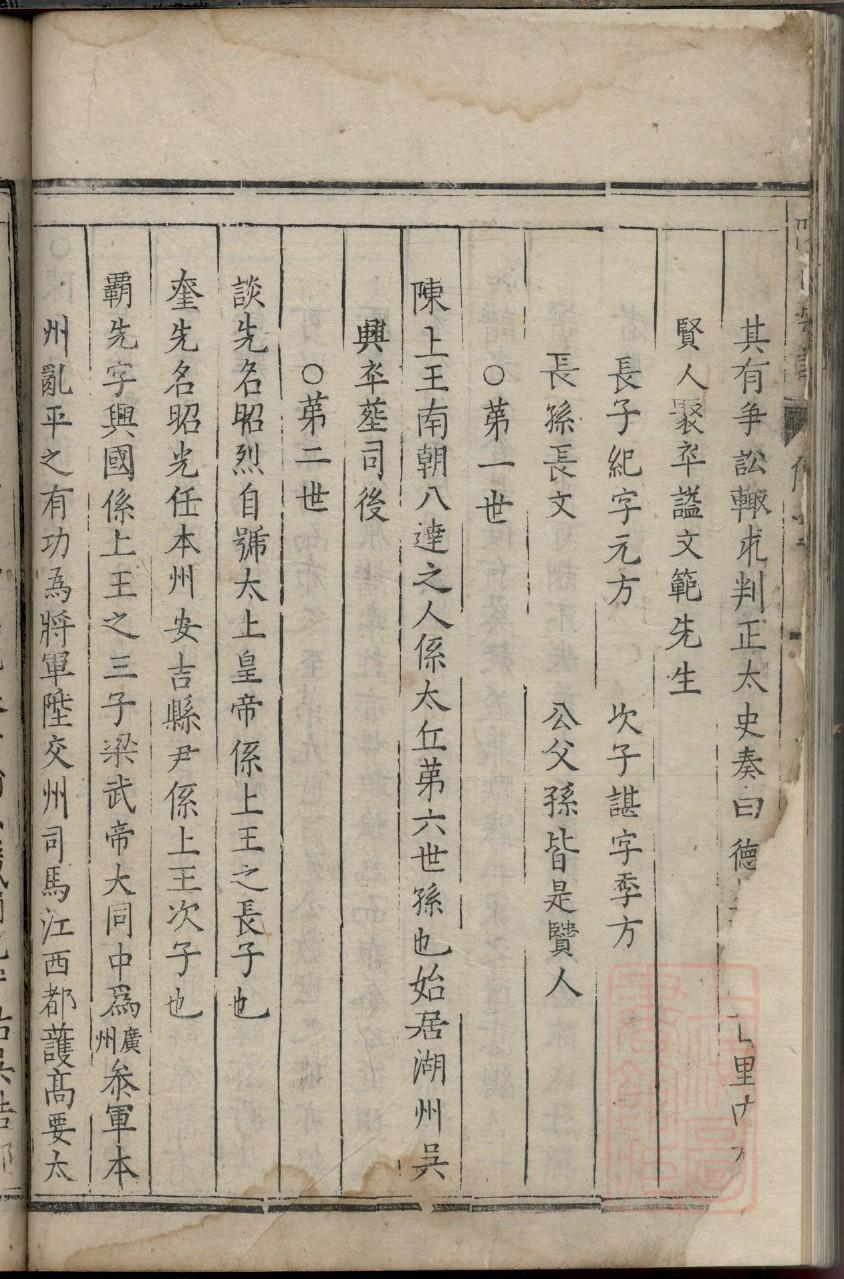 其有争訟輙求判正太史奏曰德里內
賢人聚卒謚文範先生
長子紀字元方 次子諶字季方
長孫長文 公父孫皆是賢人
○第一世
陳上王南朝八達之人係太丘第六世孫也始居湖州吳
興卒塟司後
○第二世
談先名昭烈自號太上皇帝係上王之長子也
奎先名昭光任本州安吉縣尹係上王次子也
霸先字興國係上王之三子梁武帝大同中爲廣州叅軍本
州亂平之有功為將軍陞交州司馬江西都護高要太